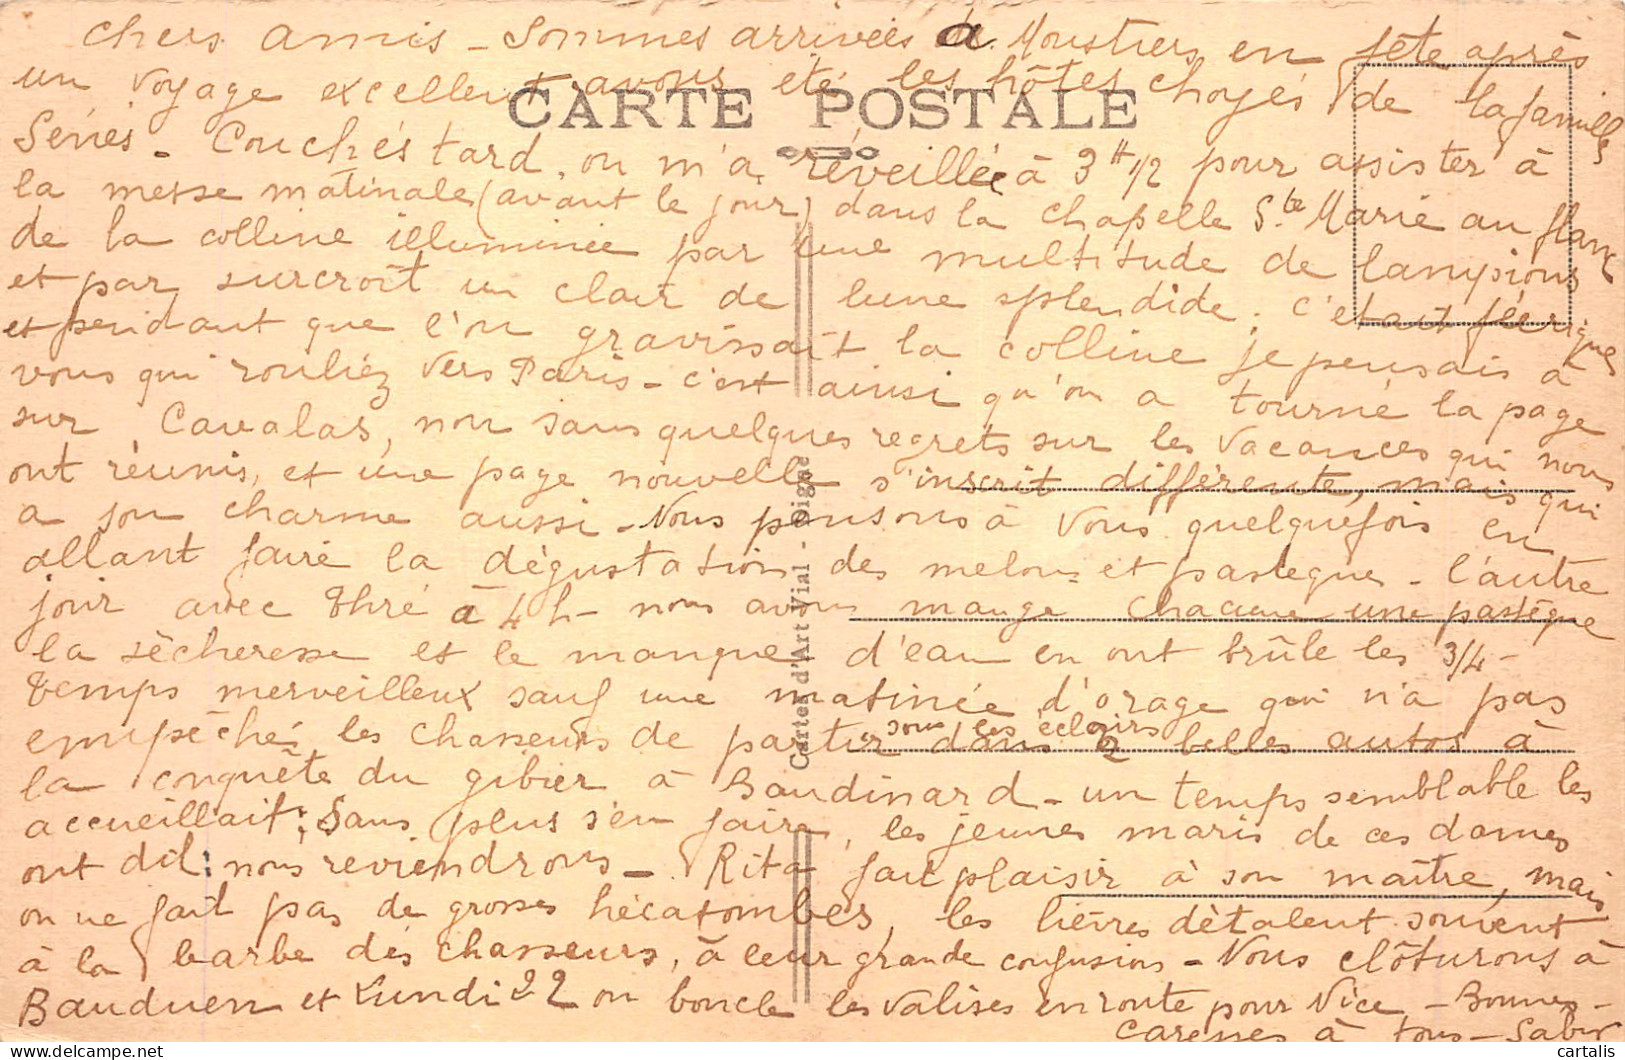 chers amis - Sommes arrivées à Moustiers en fête après
un voyage excellent, avons été les hôtes choyés de la famille
CARTE POSTALE
Sériès - Couchés tard, on m'a réveillée à 3H 1/2 pour assister à
la messe matinale (avant le jour) dans la chapelle Ste Marie au flanc
de la colline illuminée par une multitude de lampions
et par surcroît un clair de lune splendide. c'était féerique
et pendant que l'on gravissait la colline je pensais à
vous qui rouliez vers Paris - c'est ainsi qu'on a tourné la page
sur Cavalas, non sans quelques regrets sur les vacances qui nous
ont réunis, et une page nouvelle s'inscrit différente, mais qui
a son charme aussi - Nous pensons à vous quelquefois en
allant faire la dégustation des melons et pastèques - l'autre
jour avec Thré à 4 h - nous avons mangé chacune une pastèque
la sècheresse et le manque d'eau en ont brûlé les 3/4 -
Temps merveilleux sauf une matinée d'orage qui n'a pas
empêché les chasseurs de partir sous les éclairs dans 2 belles autos à
la conquête du gibier à Baudinard - un temps semblable les
accueillait; Sans plus s'en faire, les jeunes maris de ces dames
ont dit: nous reviendrons - Rita fait plaisir à son maître, mais
on ne fait pas de grosses hécatombes, les lièvres détalent souvent
à la barbe des chasseurs, à leur grande confusion - Nous clôturons à
Bauduen et Lundi 22 on boucle les valises en route pour Nice - Bonnes -
caresses à tous -
Cartes d'Art Vial - Digne
cartalis